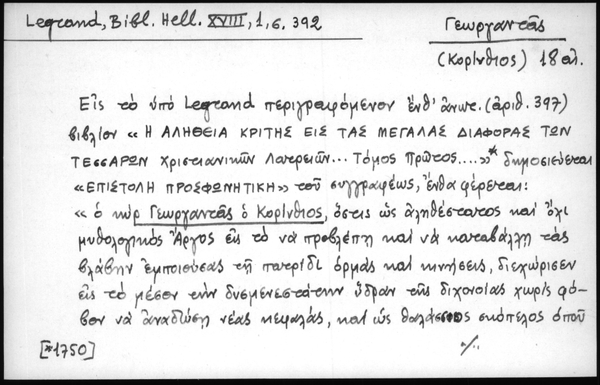 Legrand, Bibl. Hell. XVIII, 1, σ. 392
Γεωργαντᾶς
(Κορίνθιος) 18 αἰ.
Εἰς τὸ ὑπὸ Legrand περιγραφόμενον ἔνθ' ἀνωτ. (ἀριθ. 397)
βιβλίον « Ἡ ΑΛΗΘΕΙΑ ΚΡΙΤΗΣ ΕΙΣ ΤΑΣ ΜΕΓΑΛΑΣ ΔΙΑΦΟΡΑΣ ΤΩΝ
ΤΕΣΣΑΡΩΝ Χριστιανικῶν Λατρειῶν... Τόμος Πρῶτος....»* δημοσιεύεται
«ΕΠΙΣΤΟΛΗ ΠΡΟΣΦΩΝΗΤΙΚΗ» τοῦ συγγραφέως, ἔνθα φέρεται:
« ὁ κὺρ Γεωργαντᾶς ὁ Κορίνθιος, ὅστις ὡς ἀληθέστατος καὶ ὄχι
μυθολογικὸς Ἄργος εἰς τὸ νὰ προβλέπῃ καὶ νὰ καταβάλλῃ τὰς
βλάβην ἐμποιούσας τῇ πατρίδι ὁρμὰς καὶ κινήσεις, διεχώρισεν
εἰς τὸ μέσον τὴν δυσμενεστάτην ὕδραν τῆς διχονοίας χωρὶς φό-
βον νὰ ἀναδώσῃ νέας κεφαλάς, καὶ ὡς θαλάσσιος σκόπελος ὁποῦ
[*1750]
./..